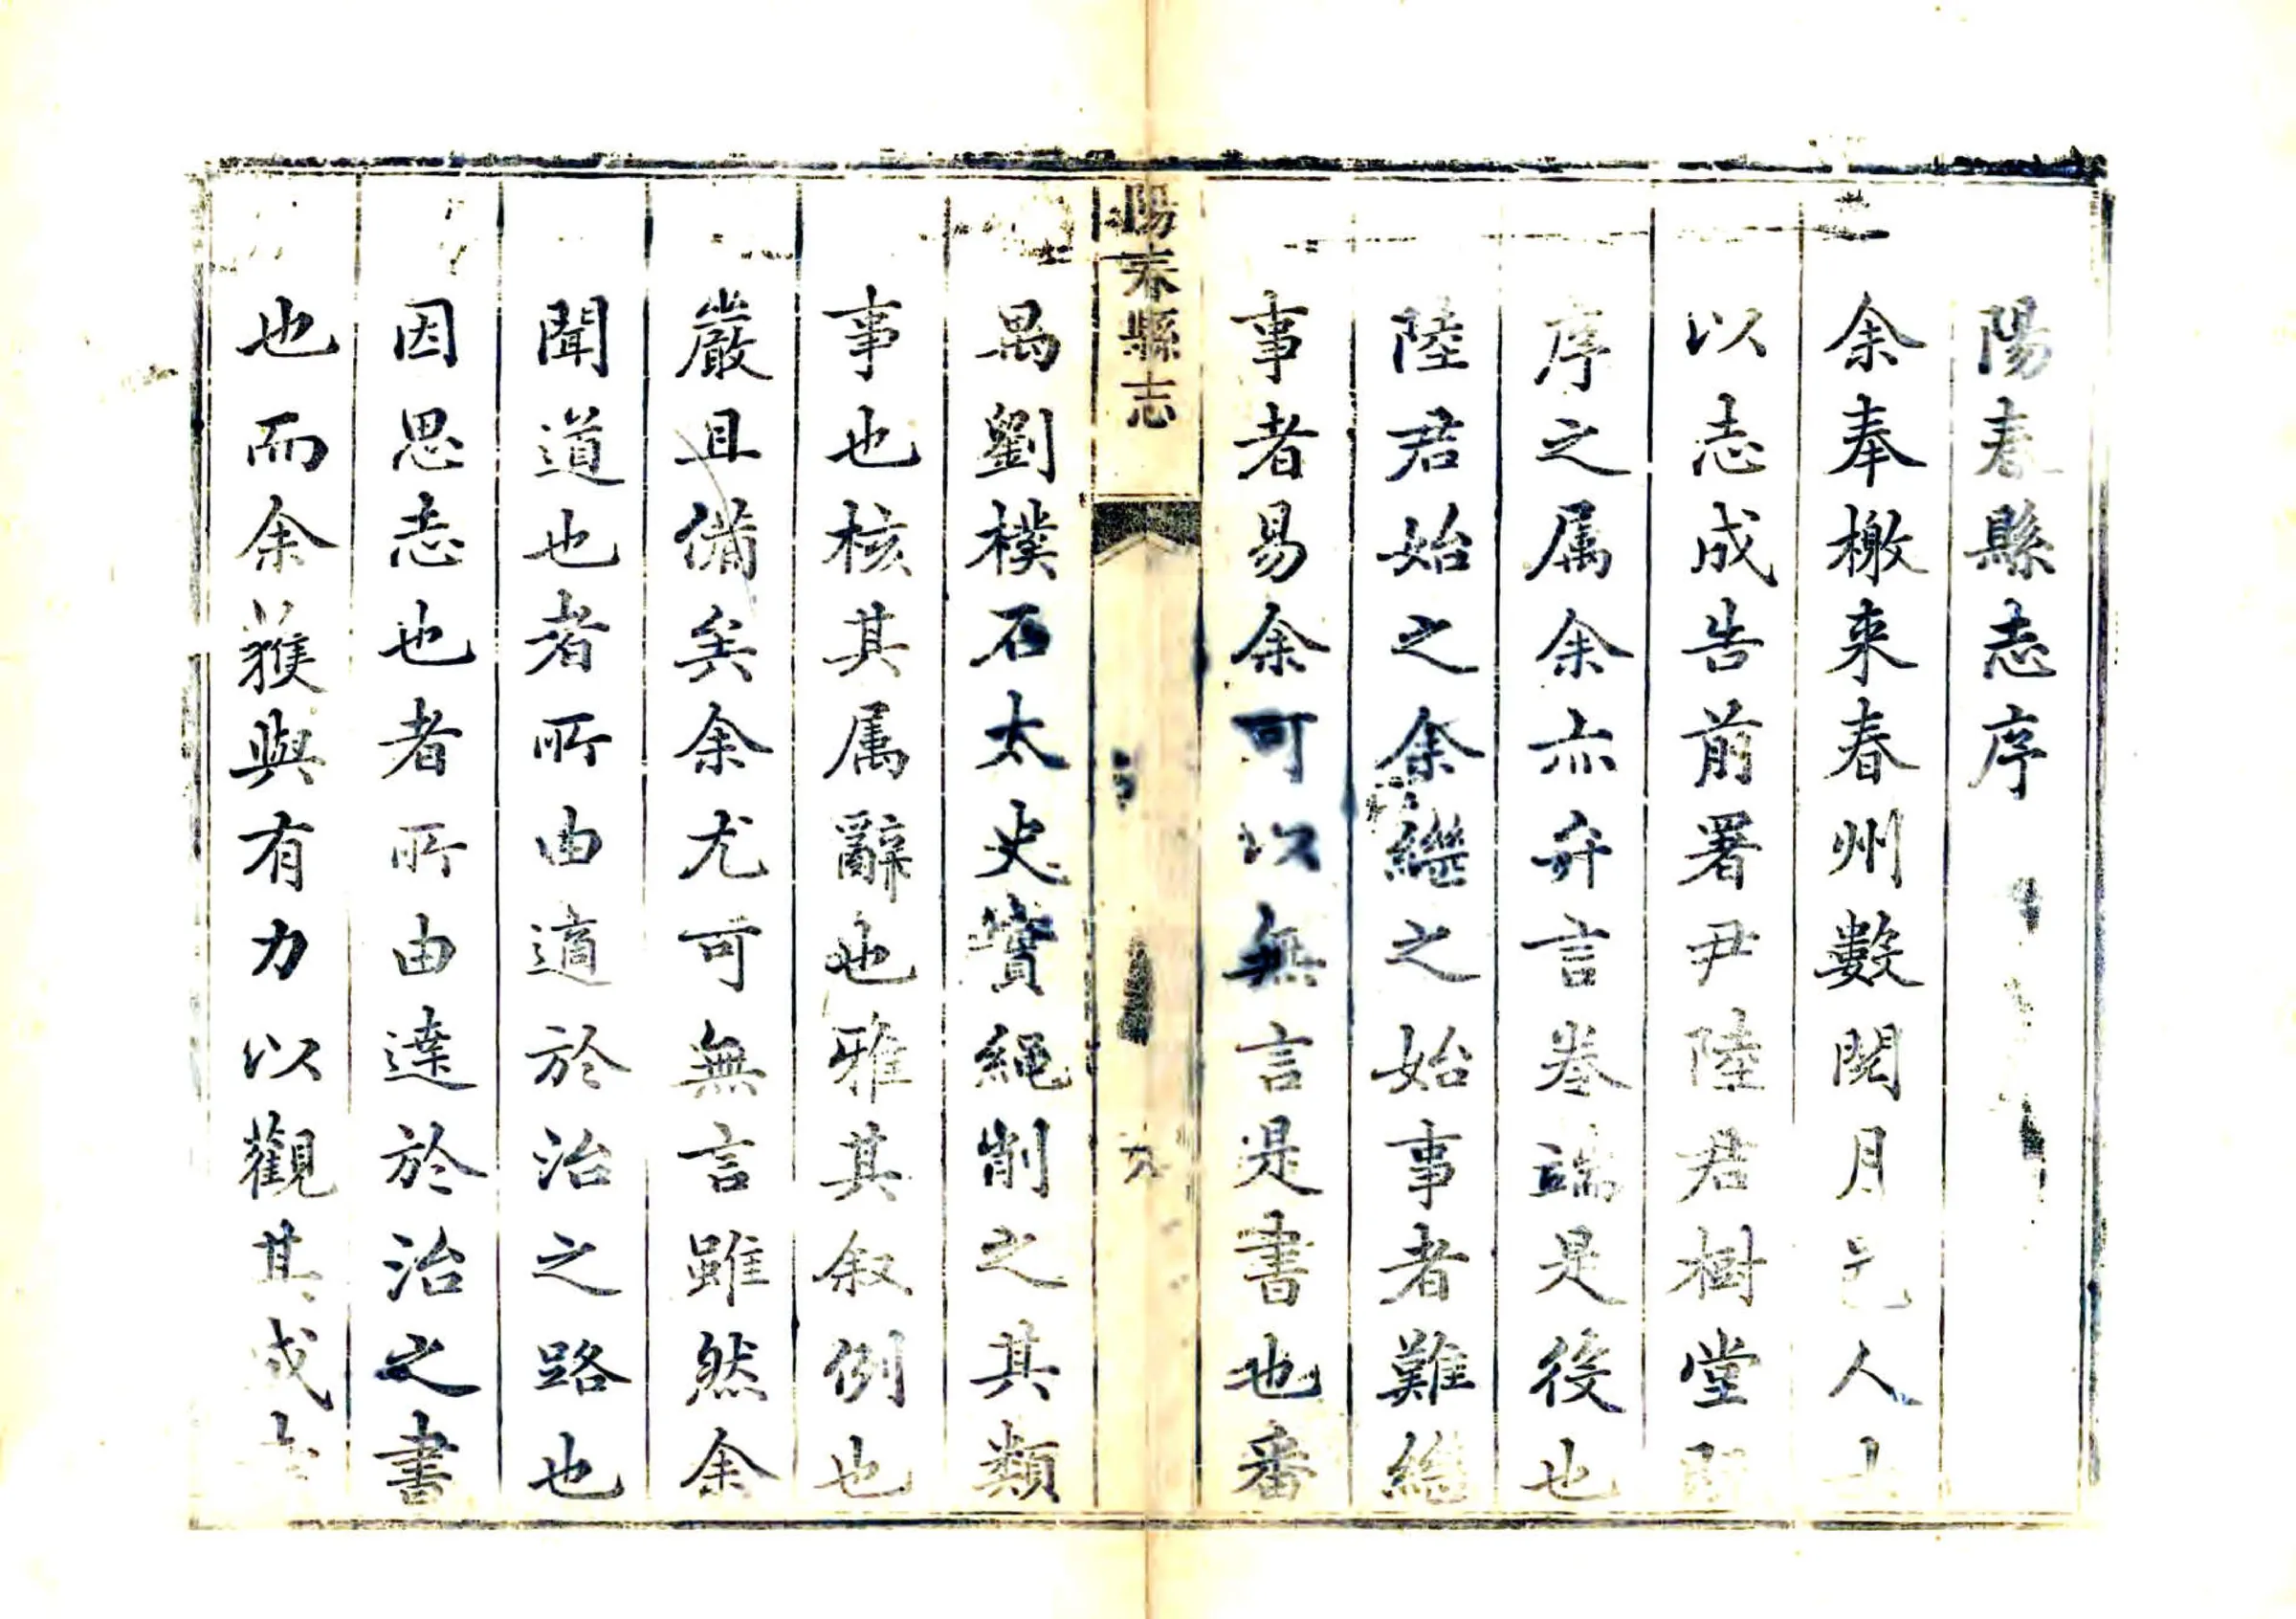 陽春縣志序
余奉檄来春州數閱月已人士
以志成告前署尹陸君樹堂
序之属余亦弁言卷端是後也
陸君始之余繼之始事者難繼
事者易余可以無言是書也番
陽春縣志
九
禺劉樸石太史實繩削之其類
事也核其属辭也雅其叙例也
嚴且俻矣余尤可無言雖然余
聞道也者所由適於治之路也
因思志也者所由達於治之書
也而余獲與有力以觀其成